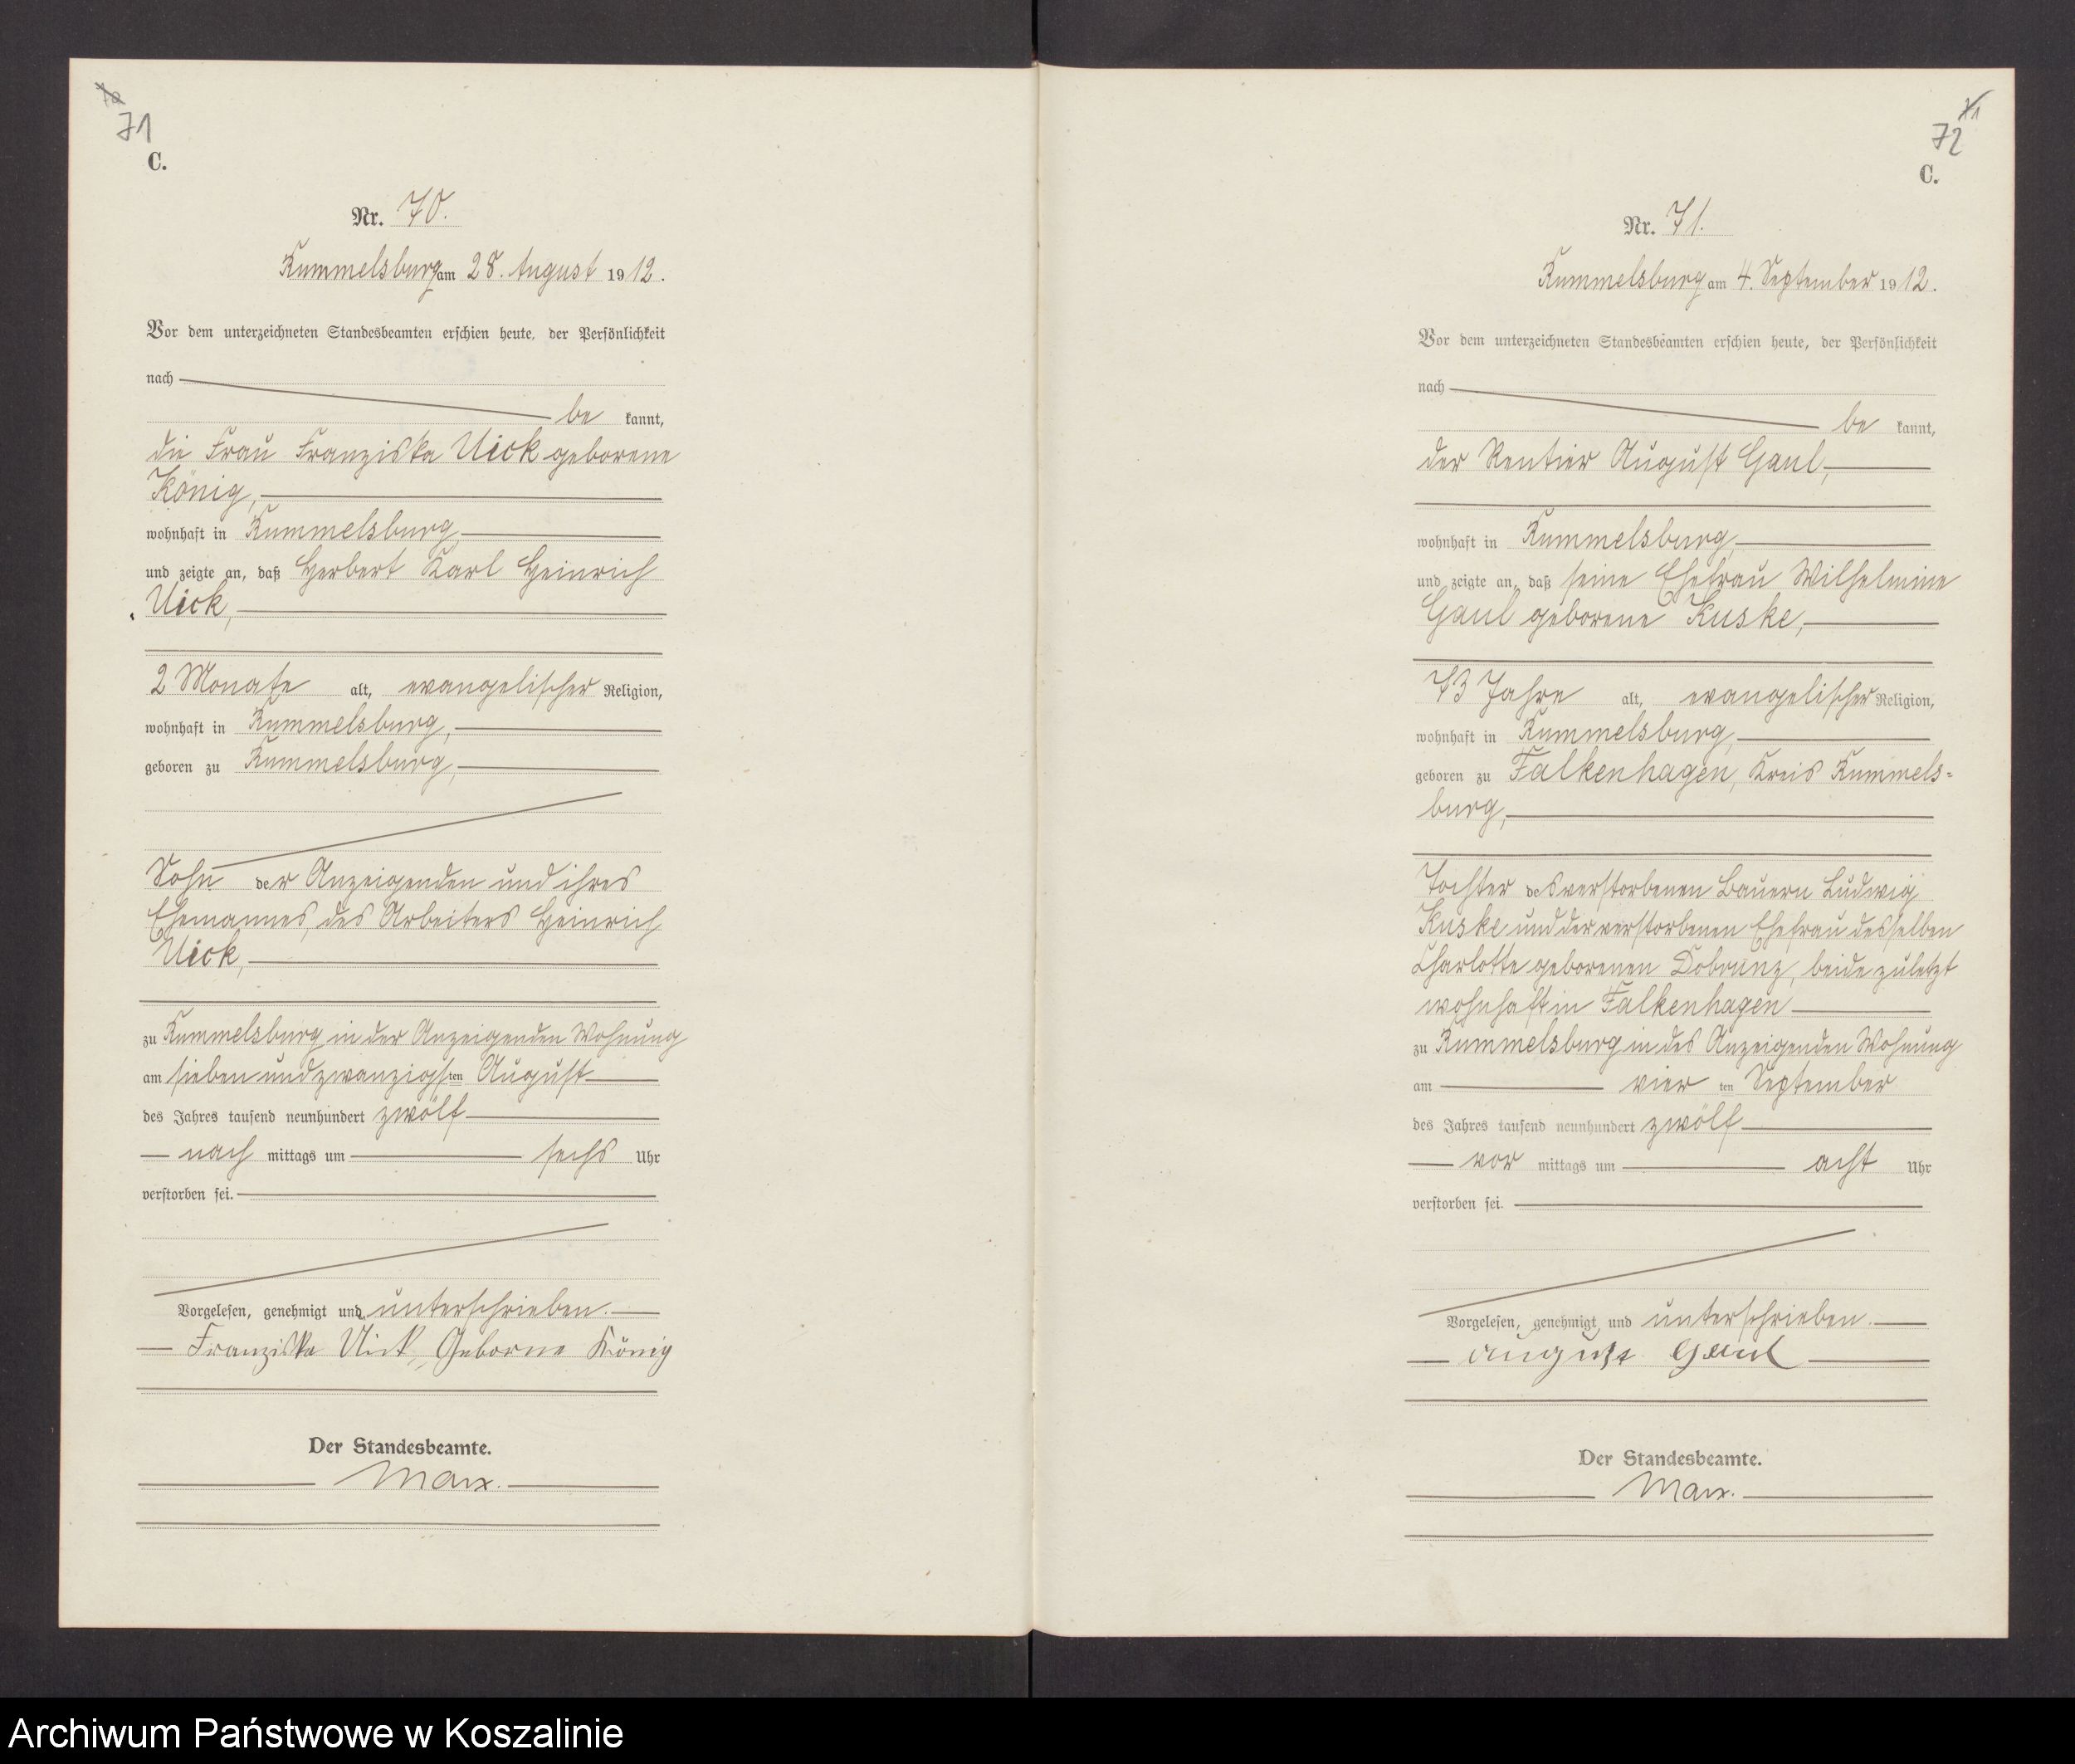 71
C.
Nr. 70.
Rummelsburg am 28. August 1912.
Vor dem unterzeichneten Standesbeamten erschien heute, der Persönlichkeit
nach
be kannt,
die Frau Franziska Uick geborene
König,
wohnhaft in Rummelsburg,
und zeigte an, daß Herbert Karl Heinrich
Uick,
2 Monate alt, evangelischer Religion,
wohnhaft in Rummelsburg,
geboren zu Rummelsburg,
Sohn der Anzeigenden und ihres
Ehemannes, des Arbeiters Heinrich
Uick,
zu Rummelsburg in der Anzeigenden Wohnung
am sieben und zwanzigsten August
des Jahres tausend neunhundert zwölf
nach mittags um sechs Uhr
verstorben sei.
Vorgelesen, genehmigt und unterschrieben.
Franziska Uick, Geborne König
Der Standesbeamte.
Marx.
72
C.
Nr. 71.
Rummelsburg am 4. September 1912.
Vor dem unterzeichneten Standesbeamten erschien heute, der Persönlichkeit
nach
be kannt,
der Rentier August Gaul,
wohnhaft in Rummelsburg,
und zeigte an, daß seine Ehefrau Wilhelmine
Gaul geborene Kuske,
73 Jahre alt, evangelischer Religion,
wohnhaft in Rummelsburg,
geboren zu Falkenhagen, Kreis Rummels-
burg,
Tochter des verstorbenen Bauern Ludwig
Kuske und der verstorbenen Ehefrau desselben
Charlotte geborenen Dobrunz, beide zuletzt
wohnhaft in Falkenhagen
zu Rummelsburg in des Anzeigenden Wohnung
am vier ten September
des Jahres tausend neunhundert zwölf
vor mittags um acht Uhr
verstorben sei.
Vorgelesen, genehmigt und unterschrieben.
August Gaul
Der Standesbeamte.
Marx.
Archiwum Państwowe w Koszalinie